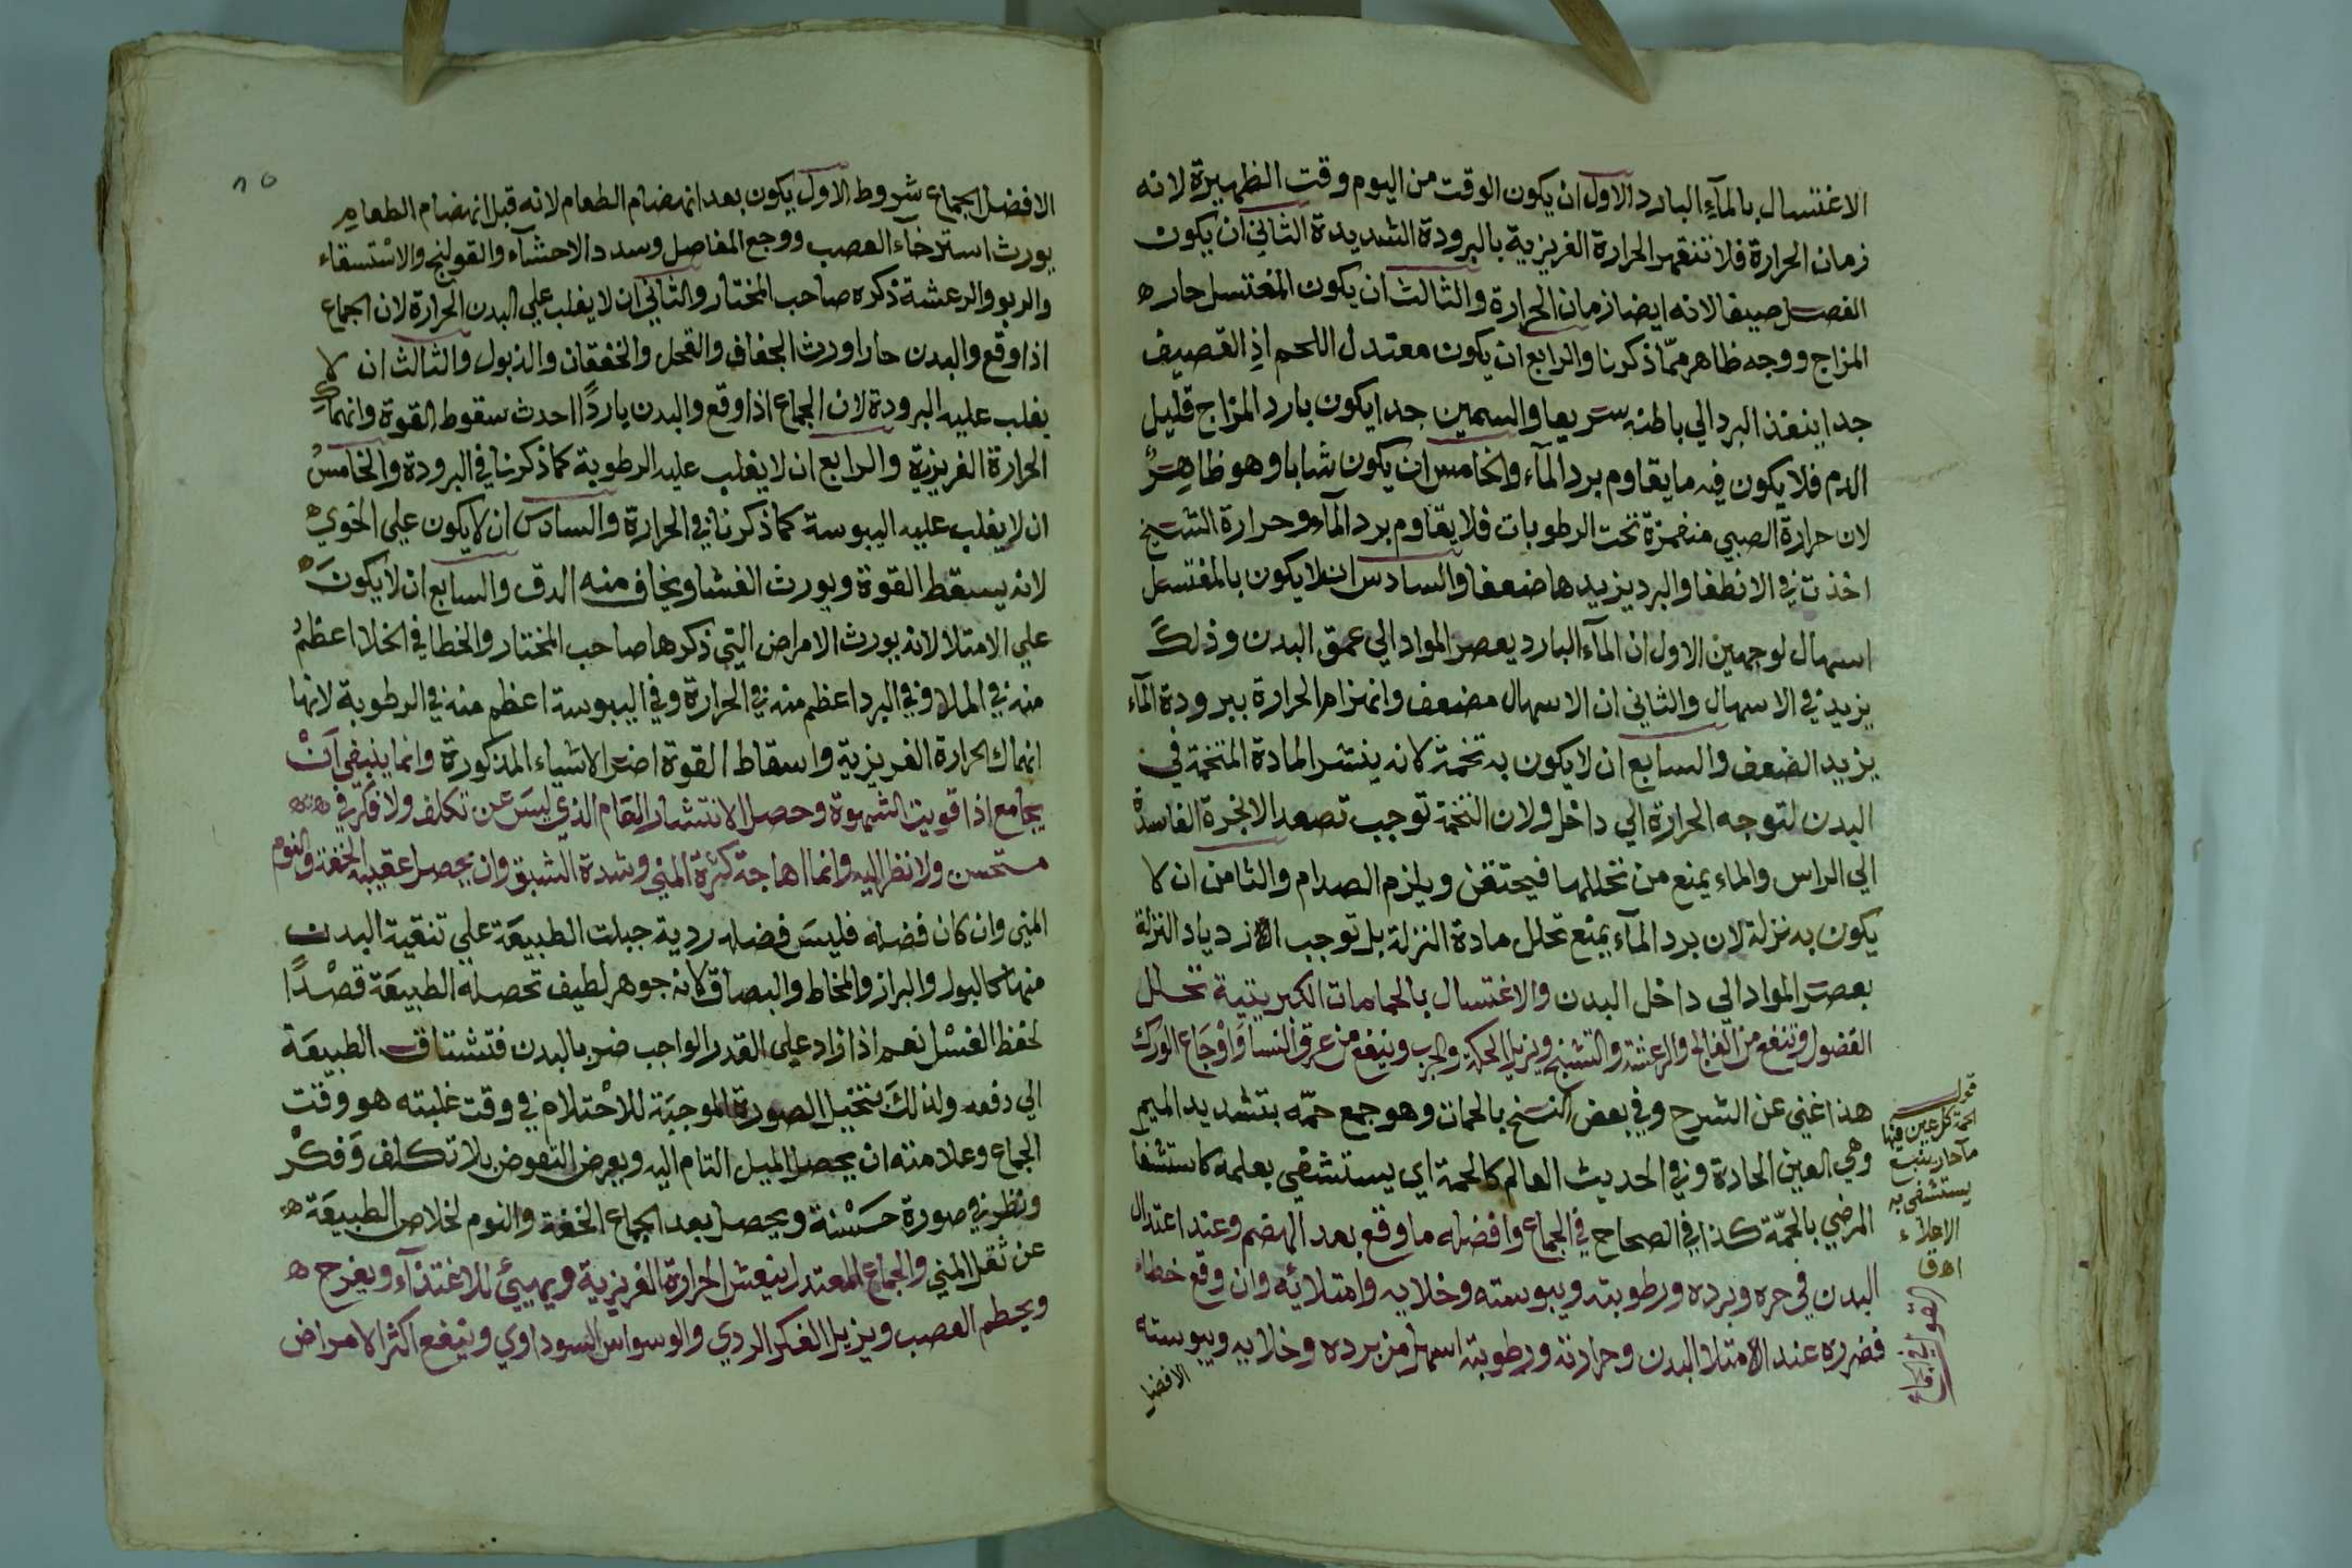 الاغتسال بالمآء البارد الاول ان يكون الوقت من اليوم وقت الظهيرة لانه
زمان الحرارة فلا تنقهر الحرارة الغريزية بالبرودة الشديدة الثاني ان يكون
الفصل صيفا لانه ايضا زمان الحرارة والثالث ان يكون المغتسل حار
المزاج ووجه ظاهر ممّا ذكرنا والرابع ان يكون معتدل اللحم اذ القصيف
جدا ينفذ البرد الي باطنه سريعا والسمين جدا يكون بارد المزاج قليل
الدم فلا يكون فيه ما يقاوم برد المآء والخامس ان يكون شابا وهو ظاهر
لان حرارة الصبي منغمزة تحت الرطوبات فلا يقاوم برد المآء وحرارة الشيخ
اخذت في الانطفا والبرد يزيدها ضعفا والسادس ان لا يكون بالمغتسل
اسهال لوجهين الاول ان المآء البارد يعصر المواد الي عمق البدن وذلك
يزيد في الاسهال والثاني ان الاسهال مضعف وانهزام الحرارة ببرودة المآء
يزيد الضعف والسابع ان لا يكون به تخمة لانه ينتشر المادة المتخمة في
البدن لتوجه الحرارة الي داخل ولان التخمة توجب تصعد الابخرة الفاسدة
الي الراس والماء يمنع من تحللها فيحتقن ويلزم الصدام والثامن ان لا
يكون به نزلة لان برد المآء يمنع تحلل مادة النزلة بل توجب الازدياد النزلة
بعصر المواد الي داخل البدن والاغتسال بالحمامات الكبريتية تحلل
الفضول وتنفع من الفالج والرعشة والتشنج ويزيل الحكة والجرب وينفع من عرق النسا واوجاع الورك
هذا غني عن الشرح وفي بعض النسخ بالحمات وهو جمع حمّه بتشديد الميم
وهي العين الحادة وفي الحديث العالم كالحمة اي يستشفي بعلمه كاستشفا
المرضي بالحمّة كذا في الصحاح في الجماع وافضله ما وقع بعد الهضم وعند اعتدال
البدن في حره وبرده ورطوبته ويبوسته وخلايه وامتلائه وان وقع خطاء
فضرره عند الامتلا البدن وحرارته ورطوبته اسهل من برده وخلايه ويبوسته
الافضل
قوله
الحمة كل عين فيها
مآء حار ينبع
يستشفي به
الاعلاء
اه ق
القول في الجماع
الافضل الجماع شروط الاول يكون بعد انهضام الطعام لانه قبل انهضام الطعام
يورث استرخآء العصب ووجع المفاصل وسدد الاحشآء والقولنج والاستسقاء
والربو والرعشة ذكره صاحب المختار والثاني ان لا يغلب علي البدن الحرارة لان الجماع
اذا وقع والبدن حارا ورث الجفاف والقحل والخفقان والذبول والثالث ان لا
يغلب عليه البرودة لان الجماع اذا وقع والبدن باردًا احدث سقوط القوة وانهاك
الحرارة الغريزية والرابع ان لا يغلب عليه الرطوبة كما ذكرنا في البرودة والخامس
ان لا يغلب عليه اليبوسة كما ذكرنا في الحرارة والسادس ان لا يكون علي الخوي
لانه يسقط القوة ويورث الغشا ويخاف منه الدق والسابع ان لا يكون
علي الامتلا لانه يورث الامراض التي ذكرها صاحب المختار والخطا في الخلا اعظم
منه في الملا وفي البرد اعظم منه في الحرارة وفي اليبوسة اعظم منه في الرطوبة لانها
انهاك الحرارة الغريزية واسقاط القوة اضر الاشياء المذكورة وانما ينبغي ان
يجامع اذا قويت الشهوة وحصل الانتشار التام الذي ليس عن تكلف ولا فكر في
مستحسن ولا نظر اليه وانما اهاجة كثرة المني وشدة الشبق وان يحصل عقيبه الخفة والنوم
المني وان كان فضلة فليس فضله ردية جبلت الطبيعة علي تنقية البدن
منها كالبول والبراز والمخاط والبصاق لانه جوهر لطيف تحصله الطبيعة قصدًا
لحفظ الغسل نعم اذا زاد علي القدر الواجب ضر بالبدن فتشتاق الطبيعة
الي دفعه ولذلك تتخيل الصورة الموجبة للاحتلام في وقت غلبته هو وقت
الجماع وعلامته ان يحصل الميل التام اليه ويعرض التعوض بلا تكلف وفكر
ونظر في صورة حسنة ويحصل بعد الجماع الخفة والنوم لخلاص الطبيعة
عن ثقل المني والجماع المعتدل ينعش الحرارة الغريزية ويهيئ للاغتذآء ويفرح
ويحطم الغصب ويزيل الفكر الردي والوسواس السوداوي وينفع اكثر الامراض